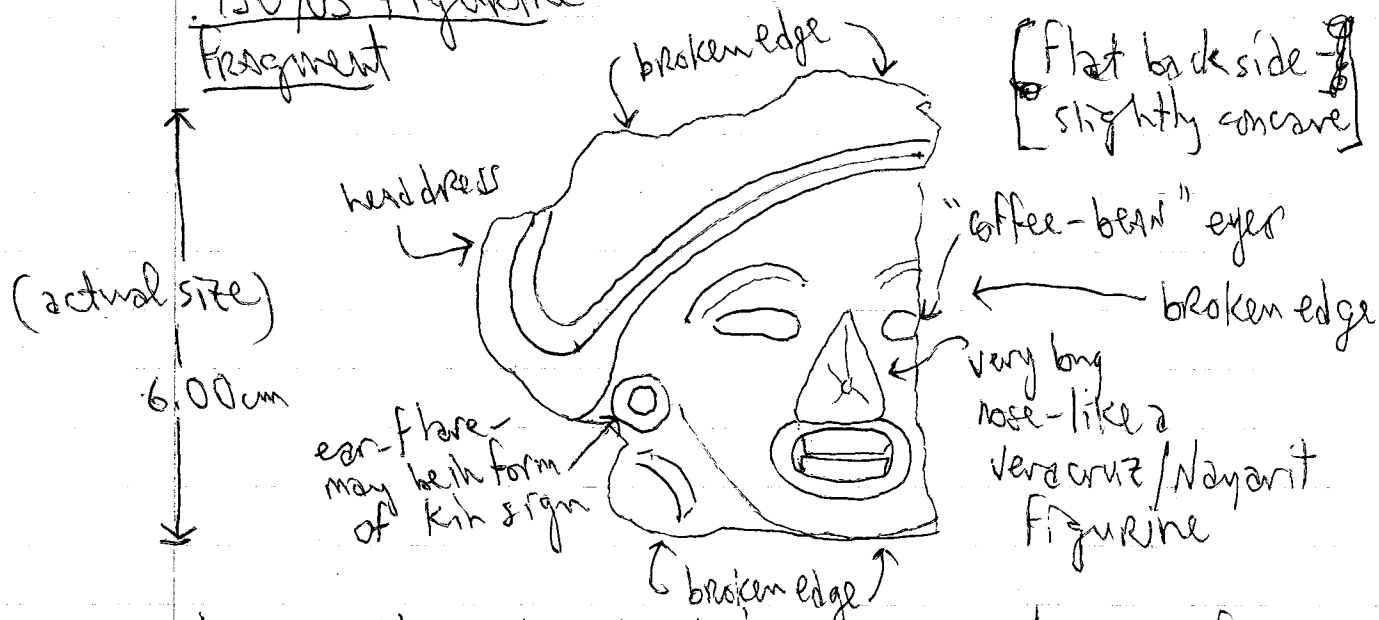 Figurine
Fragment
broken edge
[Flat back side -
slightly concave]
headdress
"coffee-bean" eyes
(actual size)
broken edge
6.00cm
very long
nose-like a
Veracruz/Nayarit
Figurine
ear-flare-
may be in form
of kin sign
broken edge